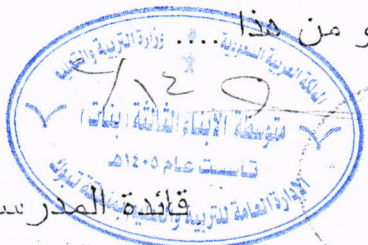 و من هذا ....
المملكة العربية السعودية
وزارة التربية والتعليم
متوسطة الأبناء الثالثة (بنات)
تأسست عام ١٤٠٥هـ
الإدارة العامة للتربية والتعليم بمنطقة تبوك
قائدة المدرس